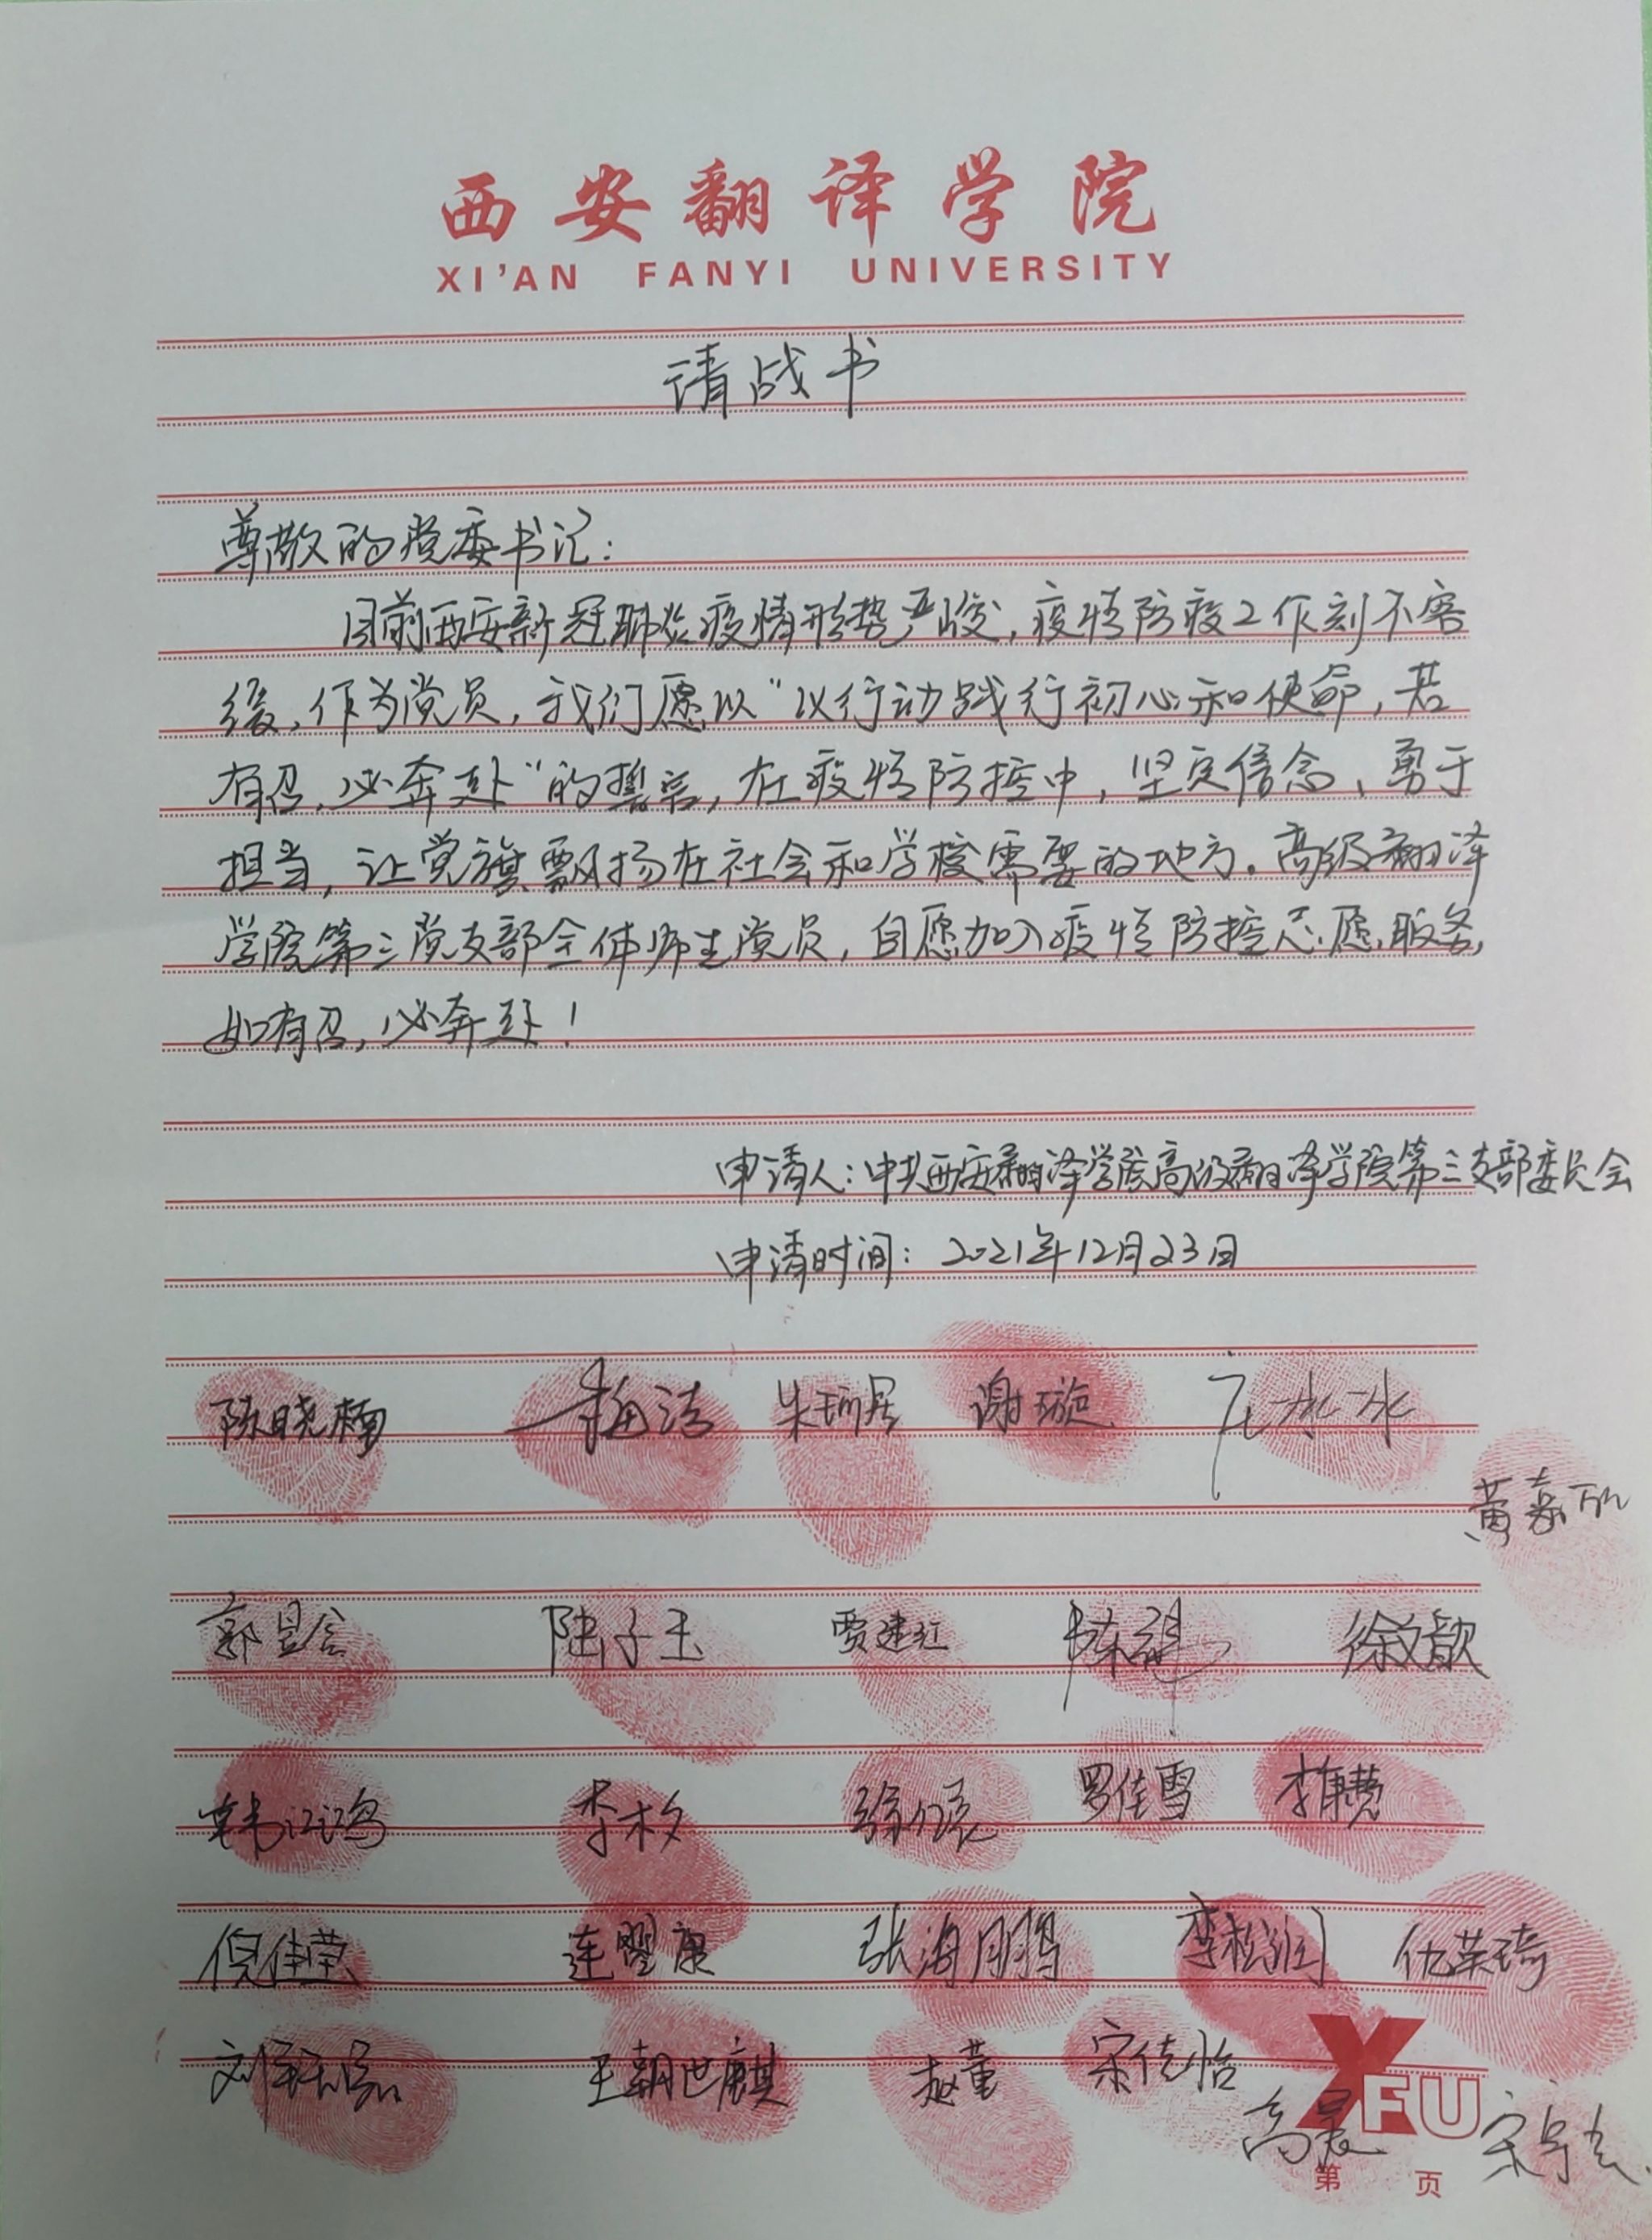 西安翻译学院
XI'AN FANYI UNIVERSITY
请战书
尊敬的党委书记:
目前西安新冠肺炎疫情形势严峻,疫情防疫工作刻不容
缓,作为党员,我们愿以“以行动践行初心和使命,若
有召,必奔赴”的誓言,在疫情防控中,坚定信念、勇于
担当,让党旗飘扬在社会和学校需要的地方。高级翻译
学院第三党支部全体师生党员,自愿加入疫情防控志愿服务,
如有召,必奔赴!
申请人:中共西安翻译学院高级翻译学院第三支部委员会
申请时间:2021年12月23日
陈晓楠 梅洁 谢璇
黄嘉欣
陆子玉 贾建红 徐文歆
韩江鸿 李木夕 罗佳雪
倪佳莹 连曌康 张海鹏 李松润 仇英琦
王朝世麒 赵董 宋佳怡
高晨
XFU
第 页